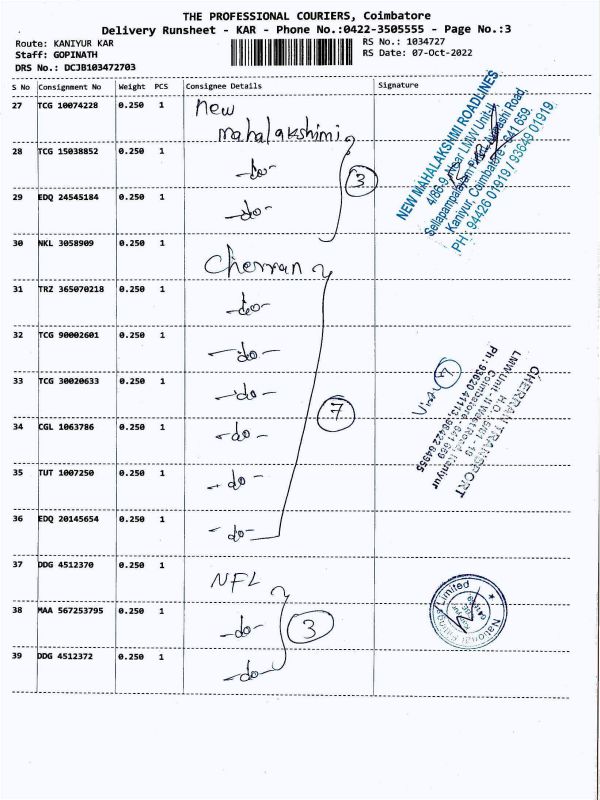 THE PROFESSIONAL COURIERS, Coimbatore
Delivery Runsheet - KAR - Phone No.:0422-3505555 - Page No.:3
Route: KANIYUR KAR
Staff: GOPINATH
DRS No.: DCJB103472703
RS No.: 1034727
RS Date: 07-Oct-2022
S No Consignment No Weight PCS Consignee Details Signature
27 TCG 10074228 0.250 1 New
mahalakshimi
28 TCG 15038852 0.250 1 -do-
29 EDQ 24545184 0.250 1 -do-
3
30 NKL 3058909 0.250 1 Cherran
31 TRZ 365070218 0.250 1 -do-
32 TCG 90002601 0.250 1 -do-
33 TCG 30020633 0.250 1 -do-
34 CGL 1063786 0.250 1 -do-
35 TUT 1007250 0.250 1 -do-
36 EDQ 20145654 0.250 1 -do-
7
37 DDG 4512370 0.250 1 NFL
38 MAA 567253795 0.250 1 -do-
39 DDG 4512372 0.250 1 -do-
3
NEW MAHALAKSHMI ROADLINES
4/86-9, Near LMW Unit-II,
Kaniyur, Coimbatore - 641 659.
PH : 94426 01919 / 93649 01919
7
CHERRAN TRANSPORT
LMW Unit
Coimbatore - 641 659
National Fittings Limited